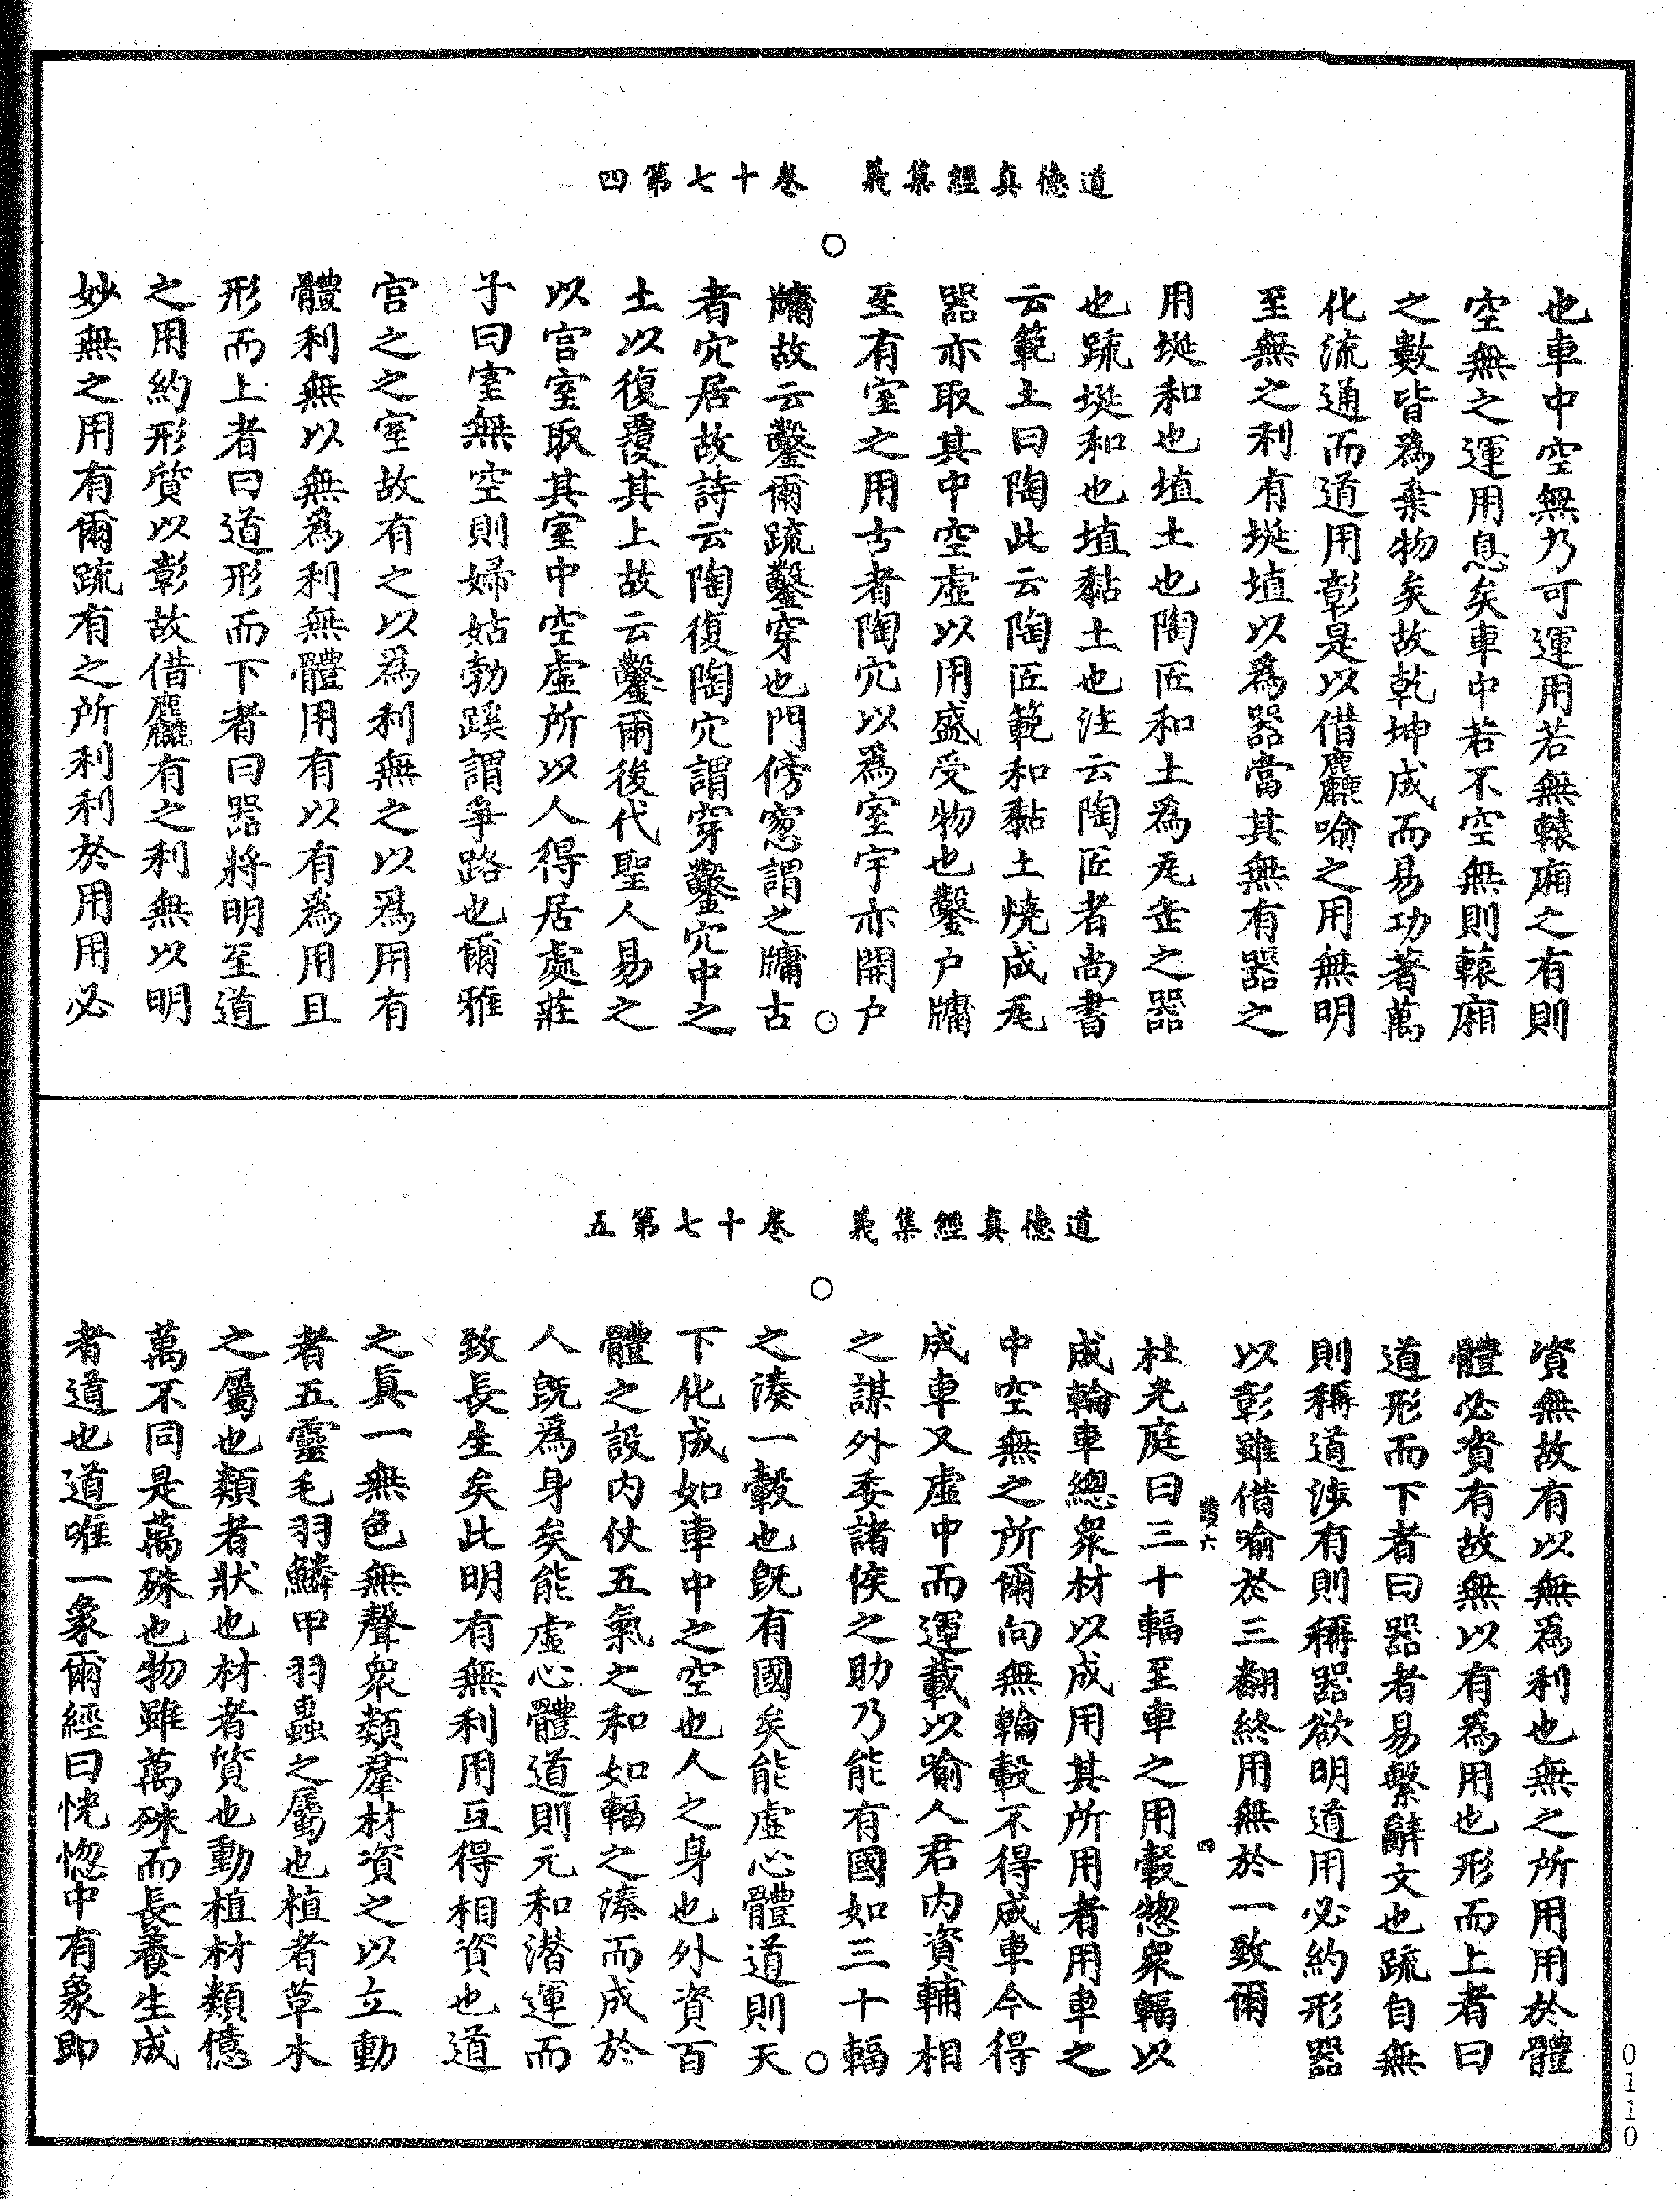 道德真經集義　卷十七第四
也車中空無乃可運用若無轅廂之有則
空無之運用息矣車中若不空無則轅廂
之數皆為棄物矣故乾坤成而易功著萬
化流通而道用彰是以借麤喻之用無明
至無之利有埏埴以為器當其無有器之
用埏和也埴土也陶匠和土為瓦缶之器
也疏埏和也埴黏土也注云陶匠者尚書
云範土曰陶此云陶匠範和黏土燒成瓦
器亦取其中空虛以用盛受物也鑿户牖
至有室之用古者陶穴以為室宇亦開户
牖故云鑿爾疏鑿穿也門傍窓謂之牖古
者穴居故詩云陶復陶穴謂穿鑿穴中之
土以復覆其上故云鑿爾後代聖人易之
以宫室取其室中空虛所以人得居處莊
子曰室無空則婦姑勃蹊謂爭路也爾雅
宫之之室故有之以為利無之以為用有
體利無以無為利無體用有以有為用且
形而上者曰道形而下者曰器將明至道
之用約形質以彰故借麤有之利無以明
妙無之用有爾疏有之所利利於用用必
道德真經集義　卷十七第五
資無故有以無為利也無之所用用於體
體必資有故無以有為用也形而上者曰
道形而下者曰器者易繫辭文也疏自無
則稱道涉有則稱器欲明道用必約形器
以彰雖借喻於三翻終用無於一致爾
杜光庭曰三十輻至車之用轂惣衆輻以
成輪車總衆材以成用其所用者用車之
中空無之所爾向無輪轂不得成車今得
成車又虛中而運載以喻人君内資輔相
之謀外委諸侯之助乃能有國如三十輻
之湊一轂也既有國矣能虛心體道則天
下化成如車中之空也人之身也外資百
體之設内仗五氣之和如輻之湊而成於
人既為身矣能虛心體道則元和潛運而
致長生矣此明有無利用互得相資也道
之真一無色無聲衆類羣材資之以立動
者五靈毛羽鱗甲羽蟲之屬也植者草木
之屬也類者狀也材者質也動植材類億
萬不同是萬殊也物雖萬殊而長養生成
者道也道唯一象爾經曰恍惚中有象即
0110